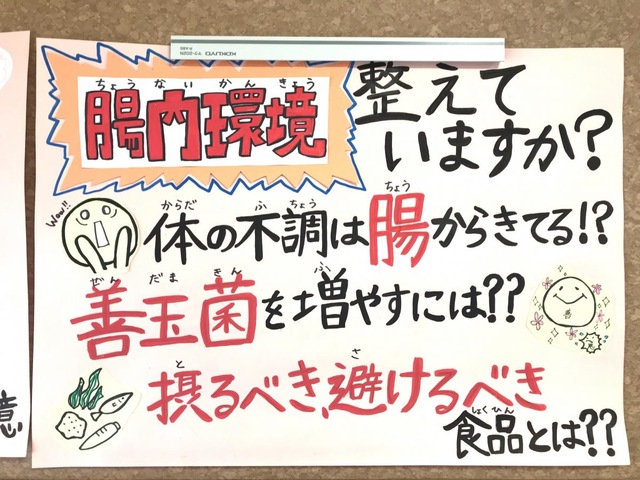 KOKUYO マク-202N
P-485
ちょうないかんきょう
腸内環境
整えて
いますか?
Wow!!
からだ ふちょう ちょう
体の不調は腸からきてる!?
ぜんだまきん ふ
善玉菌を増やすには??
善
と さ
摂るべき、避けるべき
しょくひん
食品とは??
意